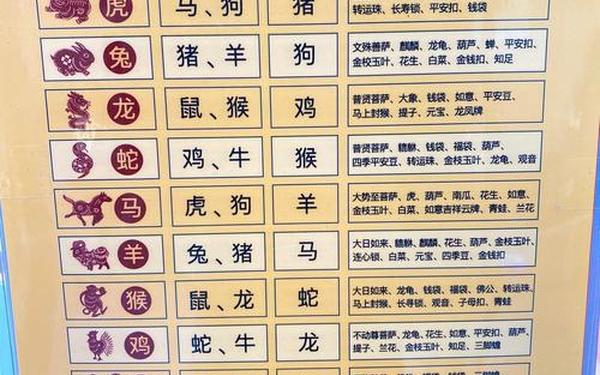 虎
马、狗
猪
转运珠、长寿锁、平安扣、钱袋
兔
猪、羊
狗
文殊菩萨、麒麟、龙龟、葫芦、蝉、平安扣、
金枝玉叶、花生、白菜、金钱扣、知足
龙
鼠、猴
鸡
普贤菩萨、大象、钱袋、如意、平安豆、
马上封猴、提子、元宝、龙凤牌
蛇
鸡、牛
猴
普贤菩萨、貔貅、钱袋、福袋、葫芦、
四季平安豆、转运珠、金枝玉叶、龙龟、观音
马
虎、狗
羊
大势至菩萨、虎、葫芦、南瓜、花生、如意、
金枝玉叶、白菜、如意吉祥云牌、青蛙、兰花
羊
兔、猪
马
大日如来、貔貅、麒麟、花生、葫芦、金枝玉叶、
连心锁、白菜、元宝、四季豆、金钱扣
猴
鼠、龙
蛇
大日如来、龙龟、钱袋、福袋、佛公、转运珠、
马上封猴、长寻锁、观音、子母扣、青蛙
鸡
蛇、牛
龙
不动尊菩萨、龙龟、花生、如意、平安扣、葫芦、
提子、兰花、金枝玉叶、知足、三脚蟾